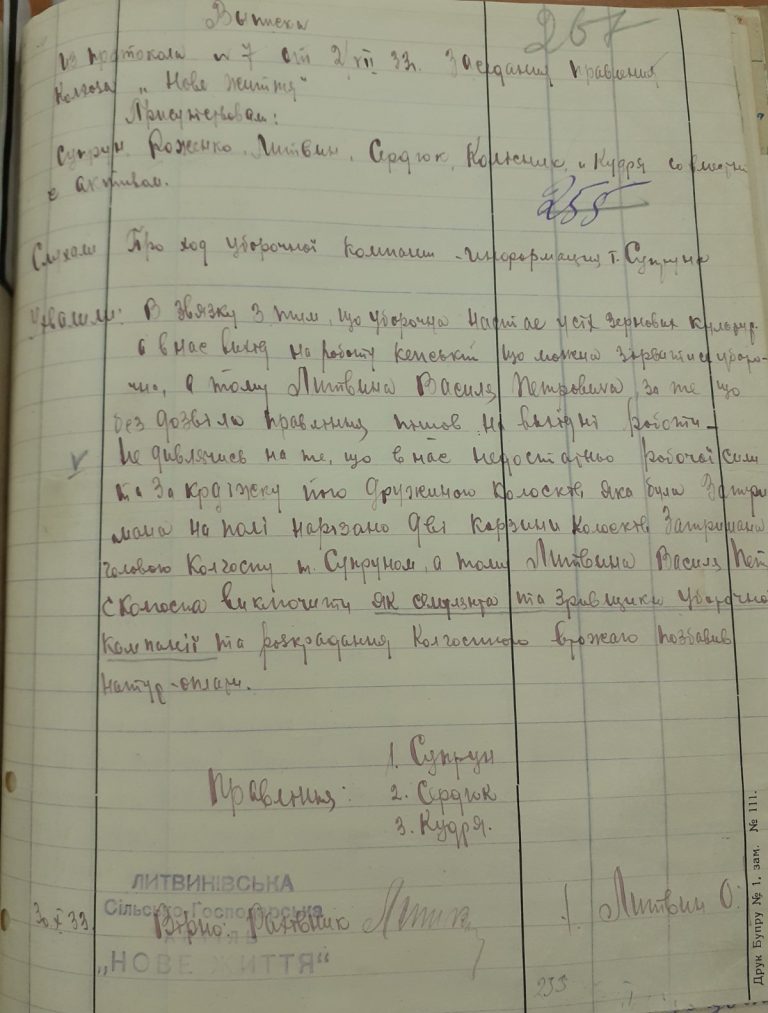 Выписка
267
из протокола № 7 от 2/VII 33 г. Заседания правления
Колгоза „Нове життя"
Присутствовали:
Супрун, Роженко, Литвин, Сердюк, Колесник и Кудря совместно
с активом.
255
Слухали Про ход уборочной компании - информация т. Супруна
Ухвалили: В звязку з тим, що уборочна настае усіх зернових культур
а в нас вихід на роботу кепський що можна зірватися уборо-
чна, а тому Литвина Василя Петровича, за те що
без дозвіла правління пішов на вигідні роботи -
не дивлячись на те, що в нас недостатньо робочої сили
та за крадіжку його дружиною колосків, яка була затри
мана на полі нарізано дві корзини колосків, затримана
головою колгоспу т. Супруном, а тому Литвина Василя Пет
с колгоспа виключить як симулянта та зрівщика уборочної
кампанії та розкрадання колгоспного врожаю позбавив
натур-оплати.
Правління:
1. Супрун
2. Сердюк
3. Кудря.
ЛИТВИНІВСЬКА
Сільсько-Господарська
АРТІЛЬ
„НОВЕ ЖИТТЯ"
30.X 33. Вірно:
Литвин О.
233
Друк Бупру № 1, зам. № 111.